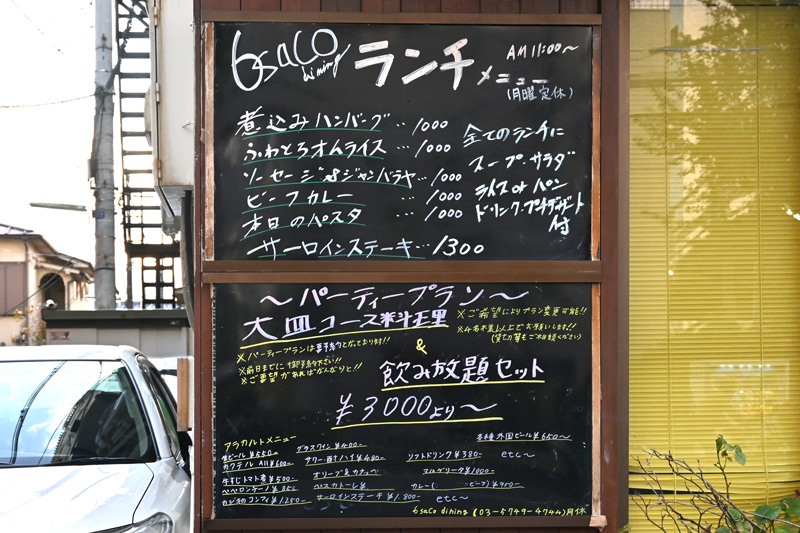 6saCO dining ランチメニュー
AM 11:00〜
(月曜定休)
煮込みハンバーグ … 1000
ふわとろオムライス … 1000
ソーセージ&ジャンバラヤ … 1000
ビーフカレー … 1000
本日のパスタ … 1000
サーロインステーキ … 1300
全てのランチに
スープ・サラダ
ライス or パン
ドリンク・プチデザート
付
〜パーティープラン〜
大皿コース料理
※パーティープランは要予約となっております!!
※前日までに御予約下さい!!
※ご要望があればがんばりと!!
※ご希望によりプラン変更可能!!
※4名様以上でお願いします!!
(貸し切り等もご相談ください)
&
飲み放題セット
¥3000より〜
アラカルトメニュー
生ビール ¥550
カクテル All ¥600
牛すじトマト煮 ¥500
ペペロンチーノ ¥850
カジキのコンフィ ¥1250
グラスワイン ¥400
サワー・酎ハイ ¥480
サーロインステーキ ¥1,800
ソフトドリンク ¥380
マルゲリータ ¥1000
etc〜
各種外国ビール ¥650〜
etc〜
6saCo dining (03-5749-4744) 月休